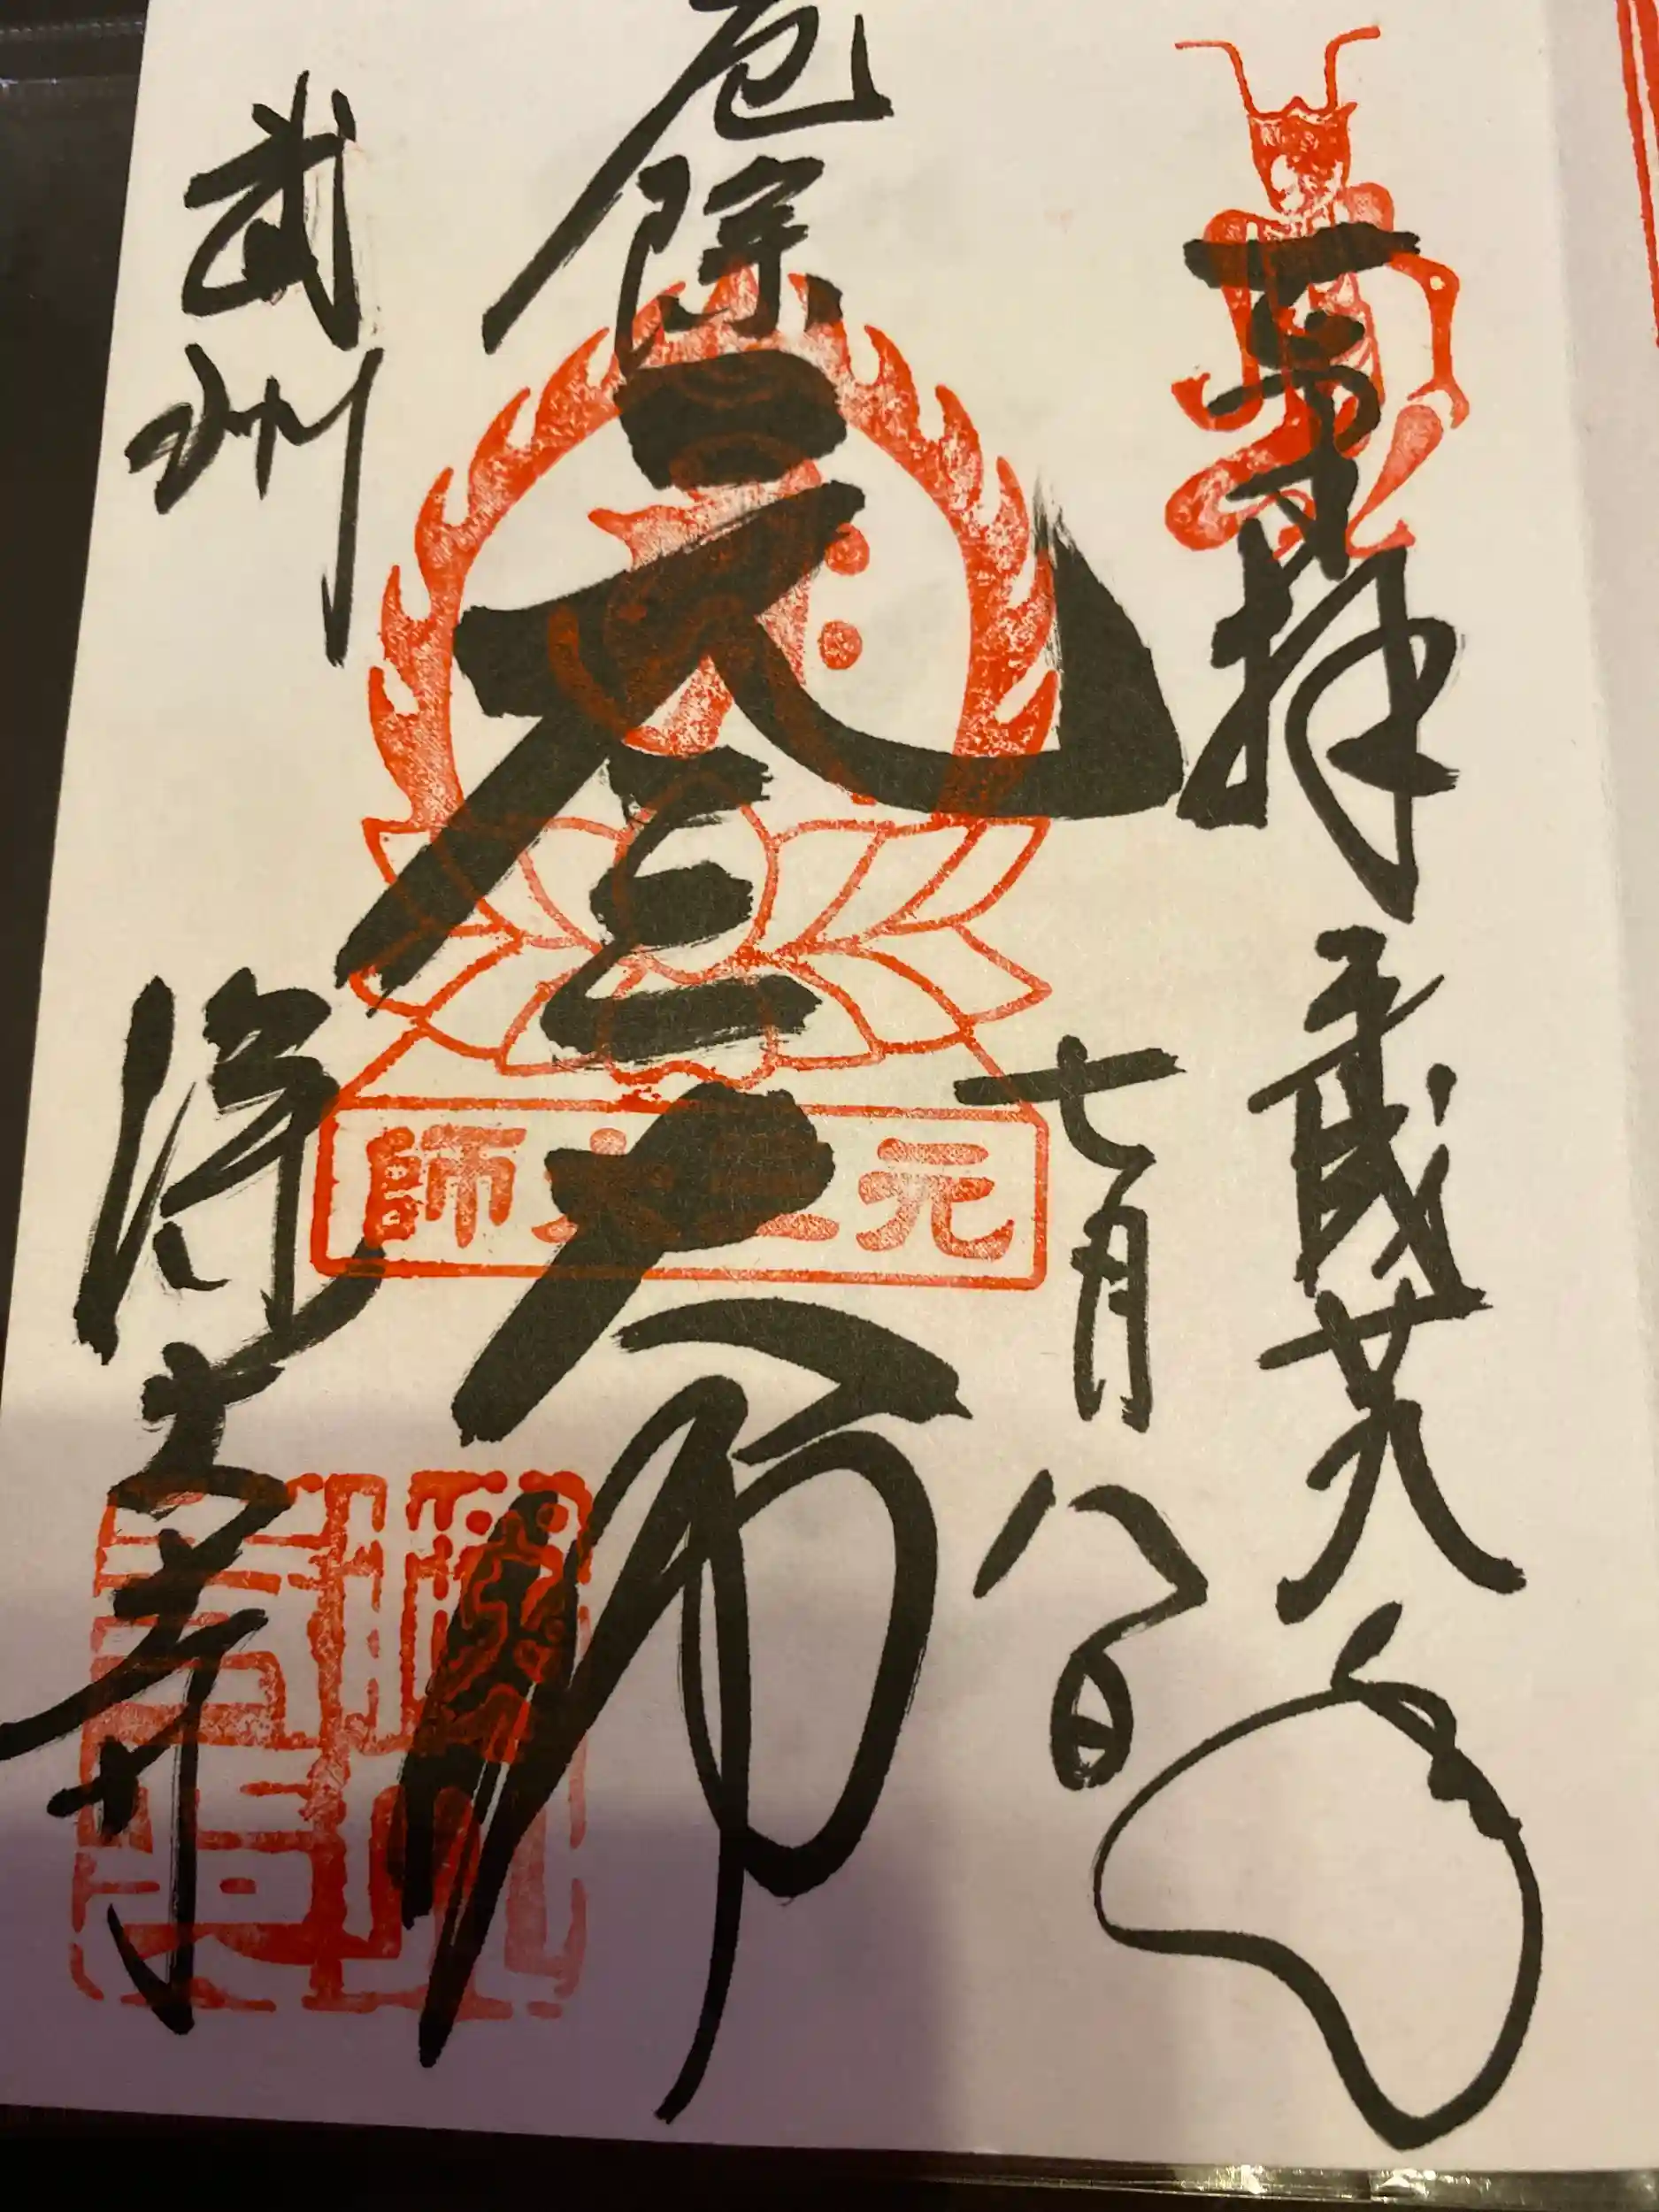 奉拝 平成廿八年
七月八日
厄除
元三大師
元三大師
武州 深大寺